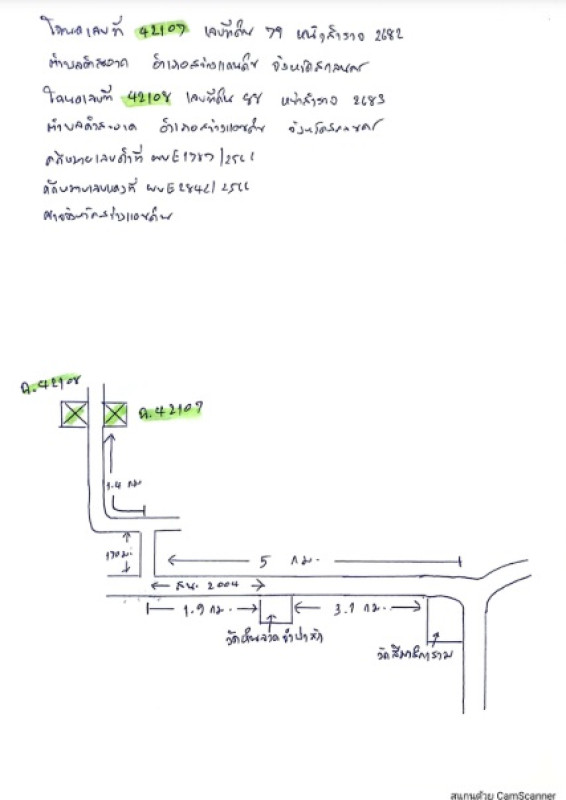 โฉนดเลขที่ 42107 เลขที่ดิน 79 หน้าสำรวจ 2682
ตำบลคำสะอาด อำเภอสว่างแดนดิน จังหวัดสกลนคร
โฉนดเลขที่ 42108 เลขที่ดิน 88 หน้าสำรวจ 2683
ตำบลคำสะอาด อำเภอสว่างแดนดิน จังหวัดสกลนคร
คดีหมายเลขดำที่ ผบE1787/2566
คดีหมายเลขแดงที่ ผบE2842/2566
ศาลจังหวัดสว่างแดนดิน
ฉ.42108
ฉ.42107
1.4 กม
170 ม.
5 กม.
สน. 2004
1.9 กม.
3.1 กม.
สแกนด้วย CamScanner